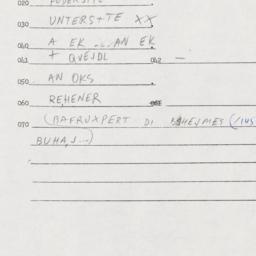 020
030 UNTERS+TE XX
040 A EK ... AN EK
041 + QVEJDL 042 —
050 AN OKS
060 REHENER
070 (BAFRUXPERT DI
BUHAJ...)